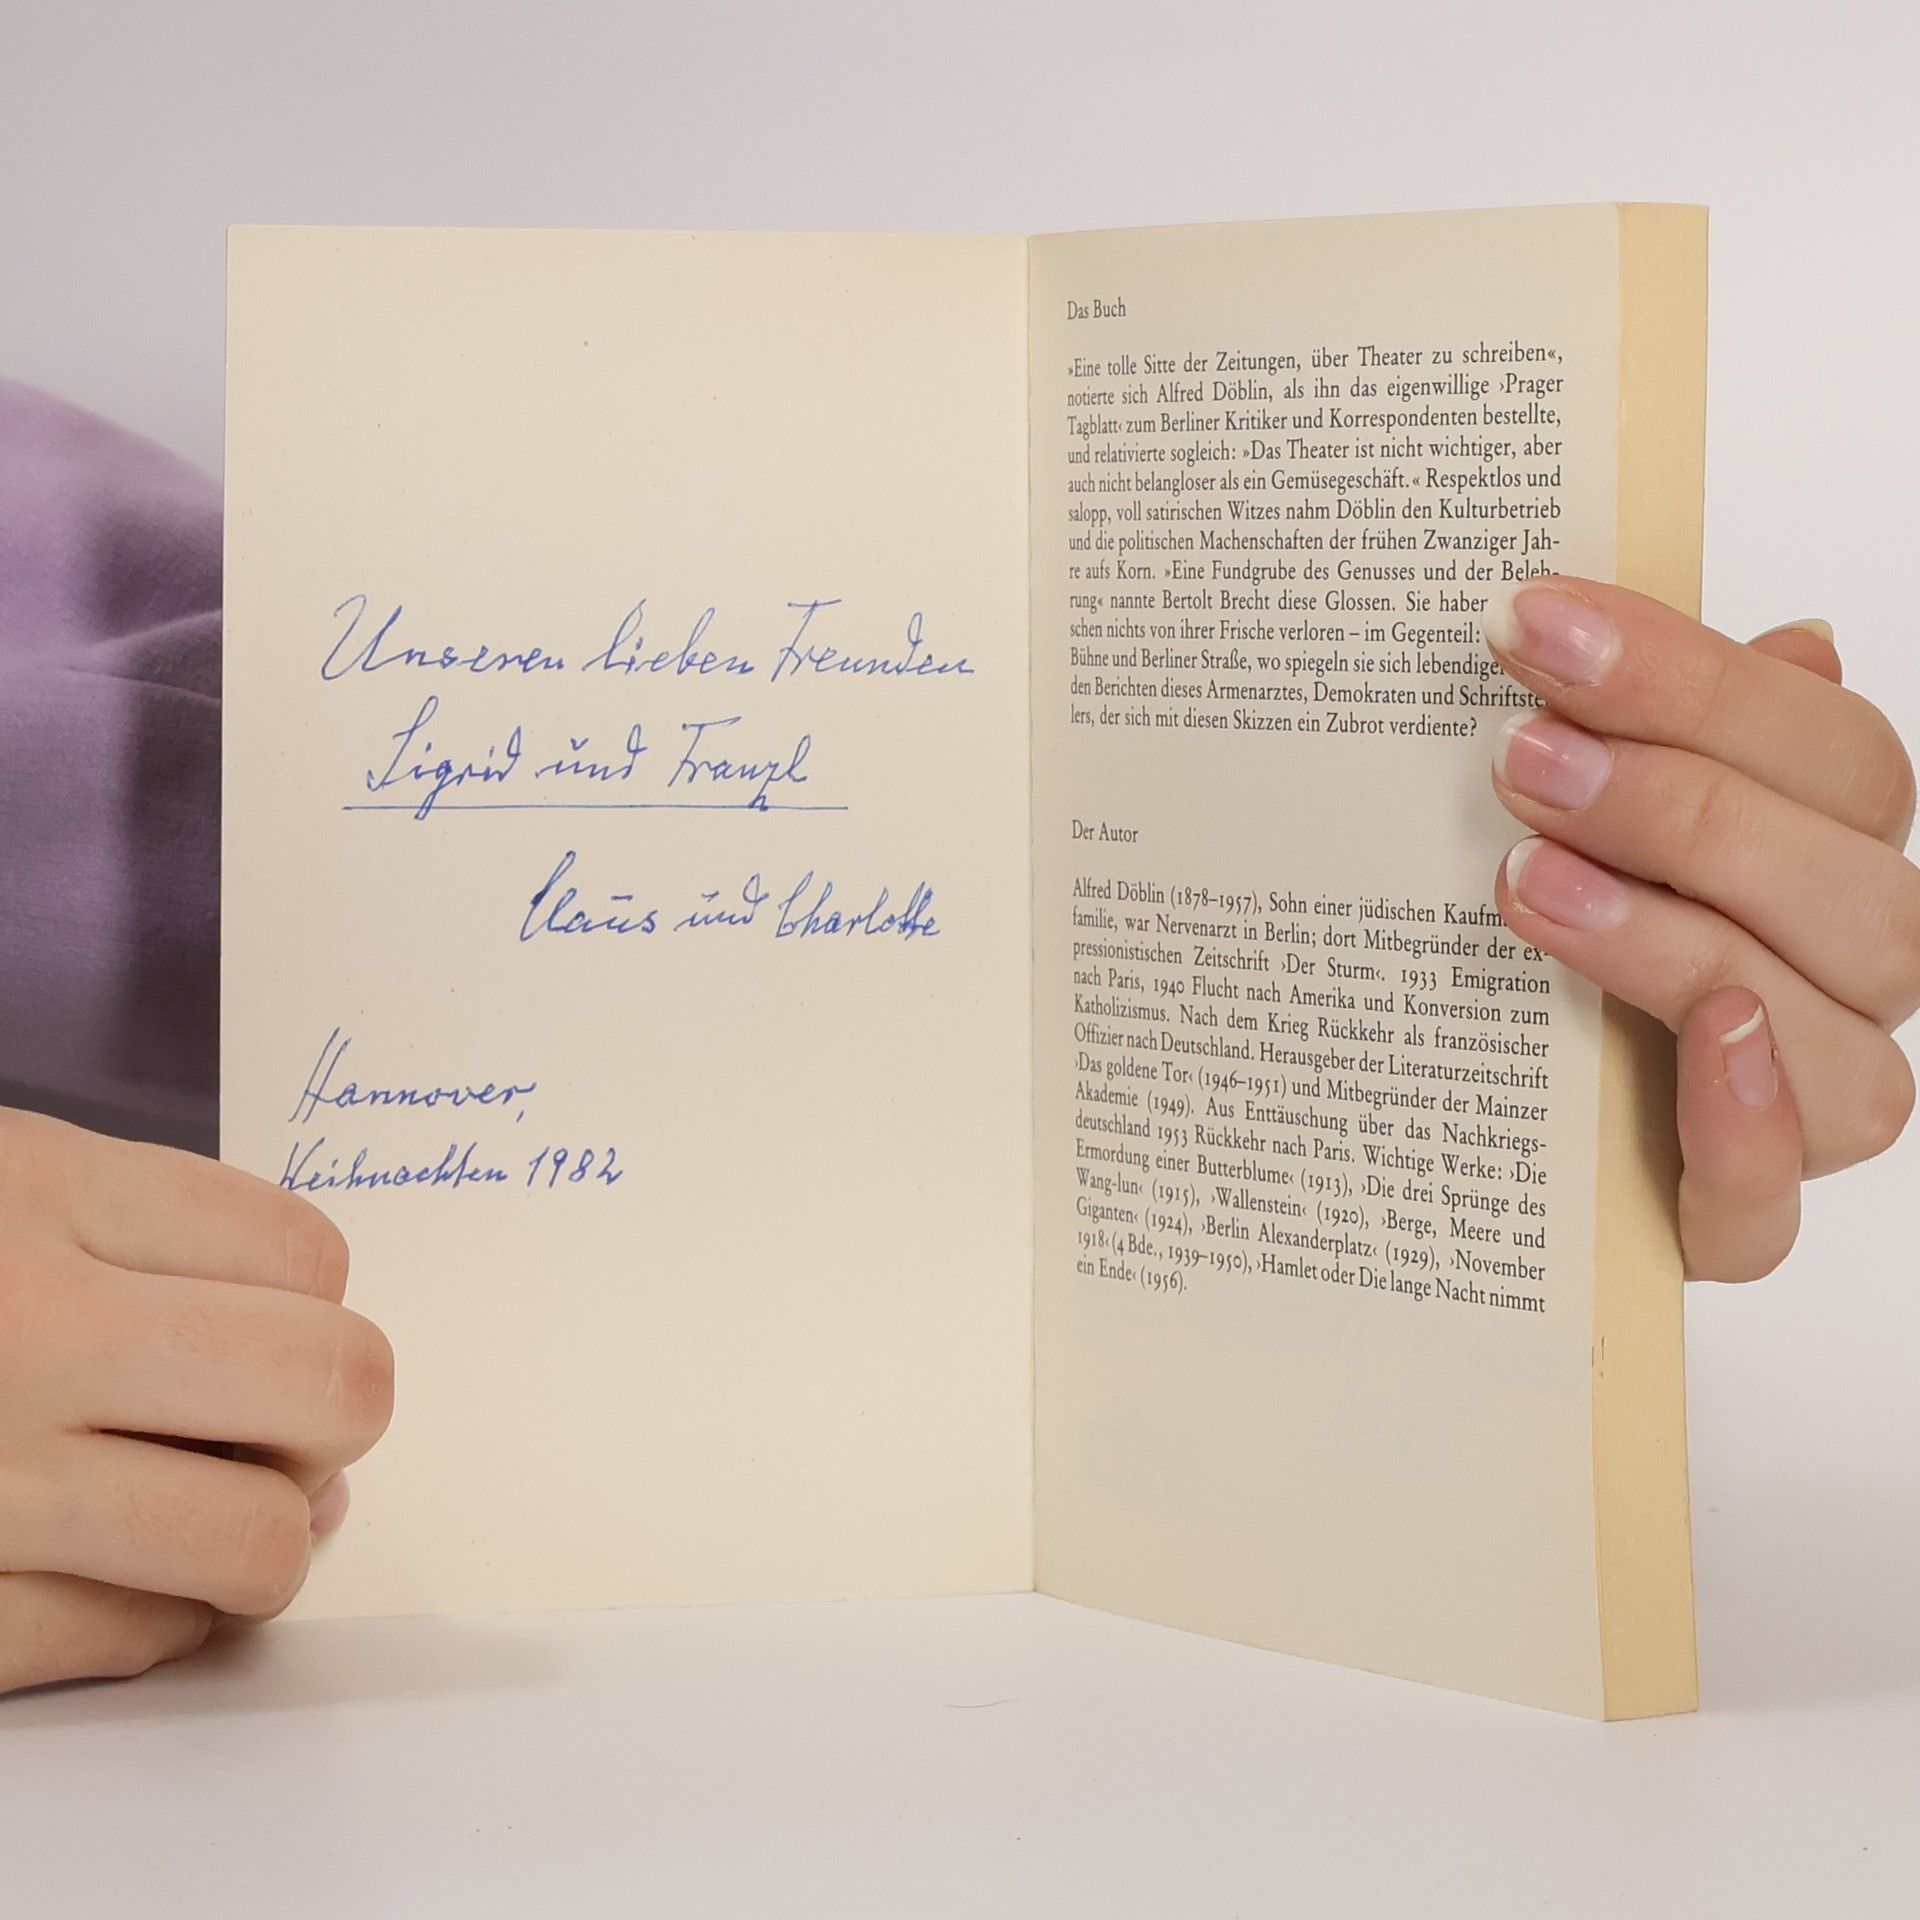 Unseren lieben Freunden
Sigrid und Franzl
Claus und Charlotte
Hannover,
Weihnachten 1982
Das Buch
»Eine tolle Sitte der Zeitungen, über Theater zu schreiben«,
notierte sich Alfred Döblin, als ihn das eigenwillige ›Prager
Tagblatt‹ zum Berliner Kritiker und Korrespondenten bestellte,
und relativierte sogleich: »Das Theater ist nicht wichtiger, aber
auch nicht belangloser als ein Gemüsegeschäft.« Respektlos und
salopp, voll satirischen Witzes nahm Döblin den Kulturbetrieb
und die politischen Machenschaften der frühen Zwanziger Jah-
re aufs Korn. »Eine Fundgrube des Genusses und der Beleh-
rung« nannte Bertolt Brecht diese Glossen. Sie haben
schen nichts von ihrer Frische verloren – im Gegenteil:
Bühne und Berliner Straße, wo spiegeln sie sich lebendiger
den Berichten dieses Armenarztes, Demokraten und Schriftstel-
lers, der sich mit diesen Skizzen ein Zubrot verdiente?
Der Autor
Alfred Döblin (1878–1957), Sohn einer jüdischen Kaufm
familie, war Nervenarzt in Berlin; dort Mitbegründer der ex-
pressionistischen Zeitschrift ›Der Sturm‹. 1933 Emigration
nach Paris, 1940 Flucht nach Amerika und Konversion zum
Katholizismus. Nach dem Krieg Rückkehr als französischer
Offizier nach Deutschland. Herausgeber der Literaturzeitschrift
›Das goldene Tor‹ (1946–1951) und Mitbegründer der Mainzer
Akademie (1949). Aus Enttäuschung über das Nachkriegs-
deutschland 1953 Rückkehr nach Paris. Wichtige Werke: ›Die
Ermordung einer Butterblume‹ (1913), ›Die drei Sprünge des
Wang-lun‹ (1915), ›Wallenstein‹ (1920), ›Berge, Meere und
Giganten‹ (1924), ›Berlin Alexanderplatz‹ (1929), ›November
1918‹ (4 Bde., 1939–1950), ›Hamlet oder Die lange Nacht nimmt
ein Ende‹ (1956).